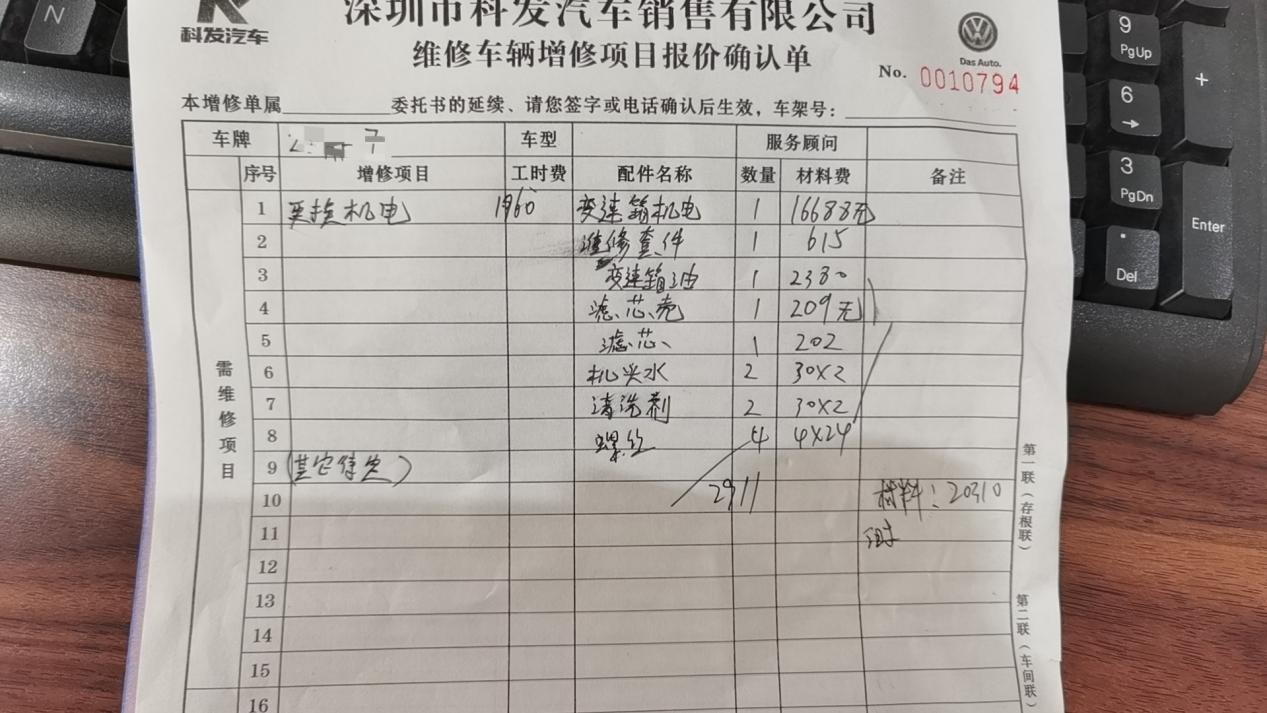 科发汽车
深圳市科发汽车销售有限公司
维修车辆增修项目报价确认单
Das Auto.
No. 0010794
本增修单属 委托书的延续、请您签字或电话确认后生效，车架号：
车牌 7 车型 服务顾问
序号 增修项目 工时费 配件名称 数量 材料费 备注
需维修项目
1 更换机电 1960 变速箱机电 1 16688元
2 维修套件 1 615
3 变速箱油 1 2380
4 滤芯壳 1 209元
5 滤芯 1 202
6 机头水 2 30X2
7 清洗剂 2 30X2
8 螺丝 4 4X24
9 (其它待定)
10 2911 材料：20310
11
12
13
14
15
16
第一联（存根联）
第二联（车间联）
N
9
PgUp
+
6
→
3
PgDn
.
Del
Enter